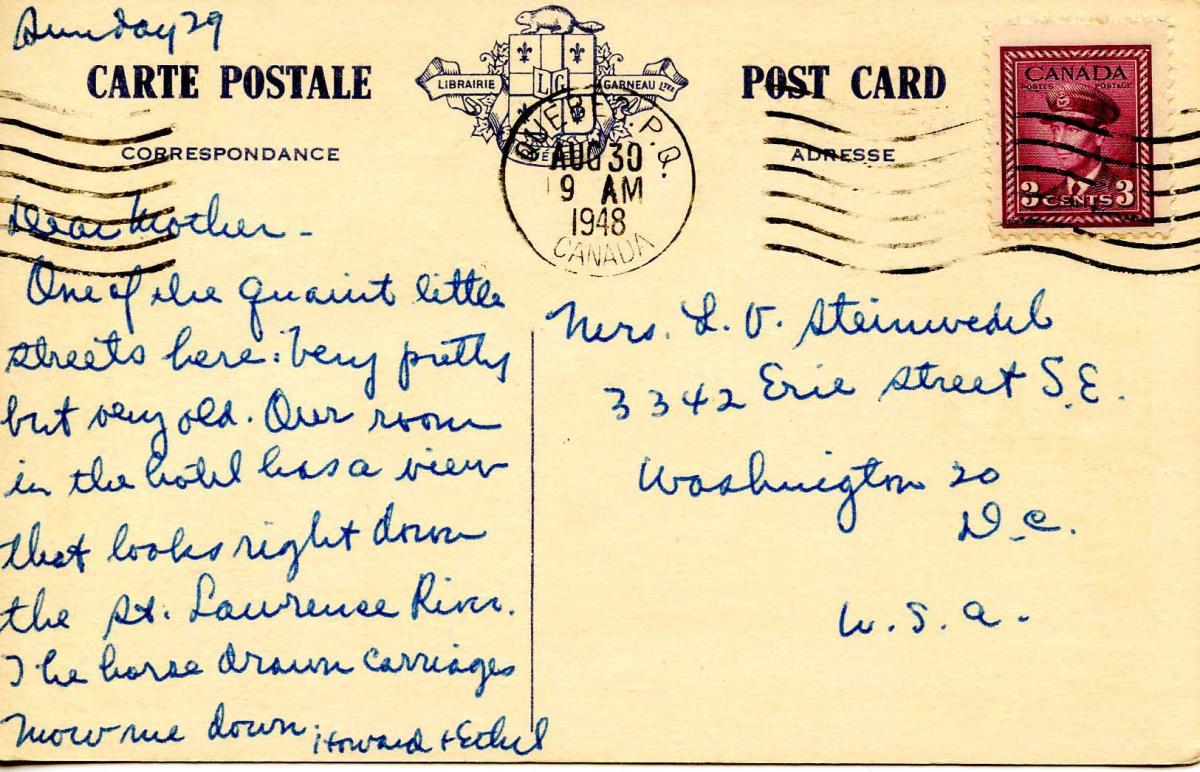 Sunday 29
CARTE POSTALE
LIBRAIRIE
GARNEAU LTÉE
LG
POST CARD
CANADA
POSTES POSTAGE
3 CENTS 3
QUÉBEC, P.Q.
AUG 30
9 AM
1948
CANADA
CORRESPONDANCE
ADRESSE
Dear Mother -
One of the quaint little
streets here. Very pretty
but very old. Our room
in the hotel has a view
that looks right down
the St. Lawrence River.
The horse drawn carriages
mow me down.
Howard & Ethel
Mrs. L. V. Steinwedel
3342 Erie Street S.E.
Washington 20
D.C.
U.S.A.